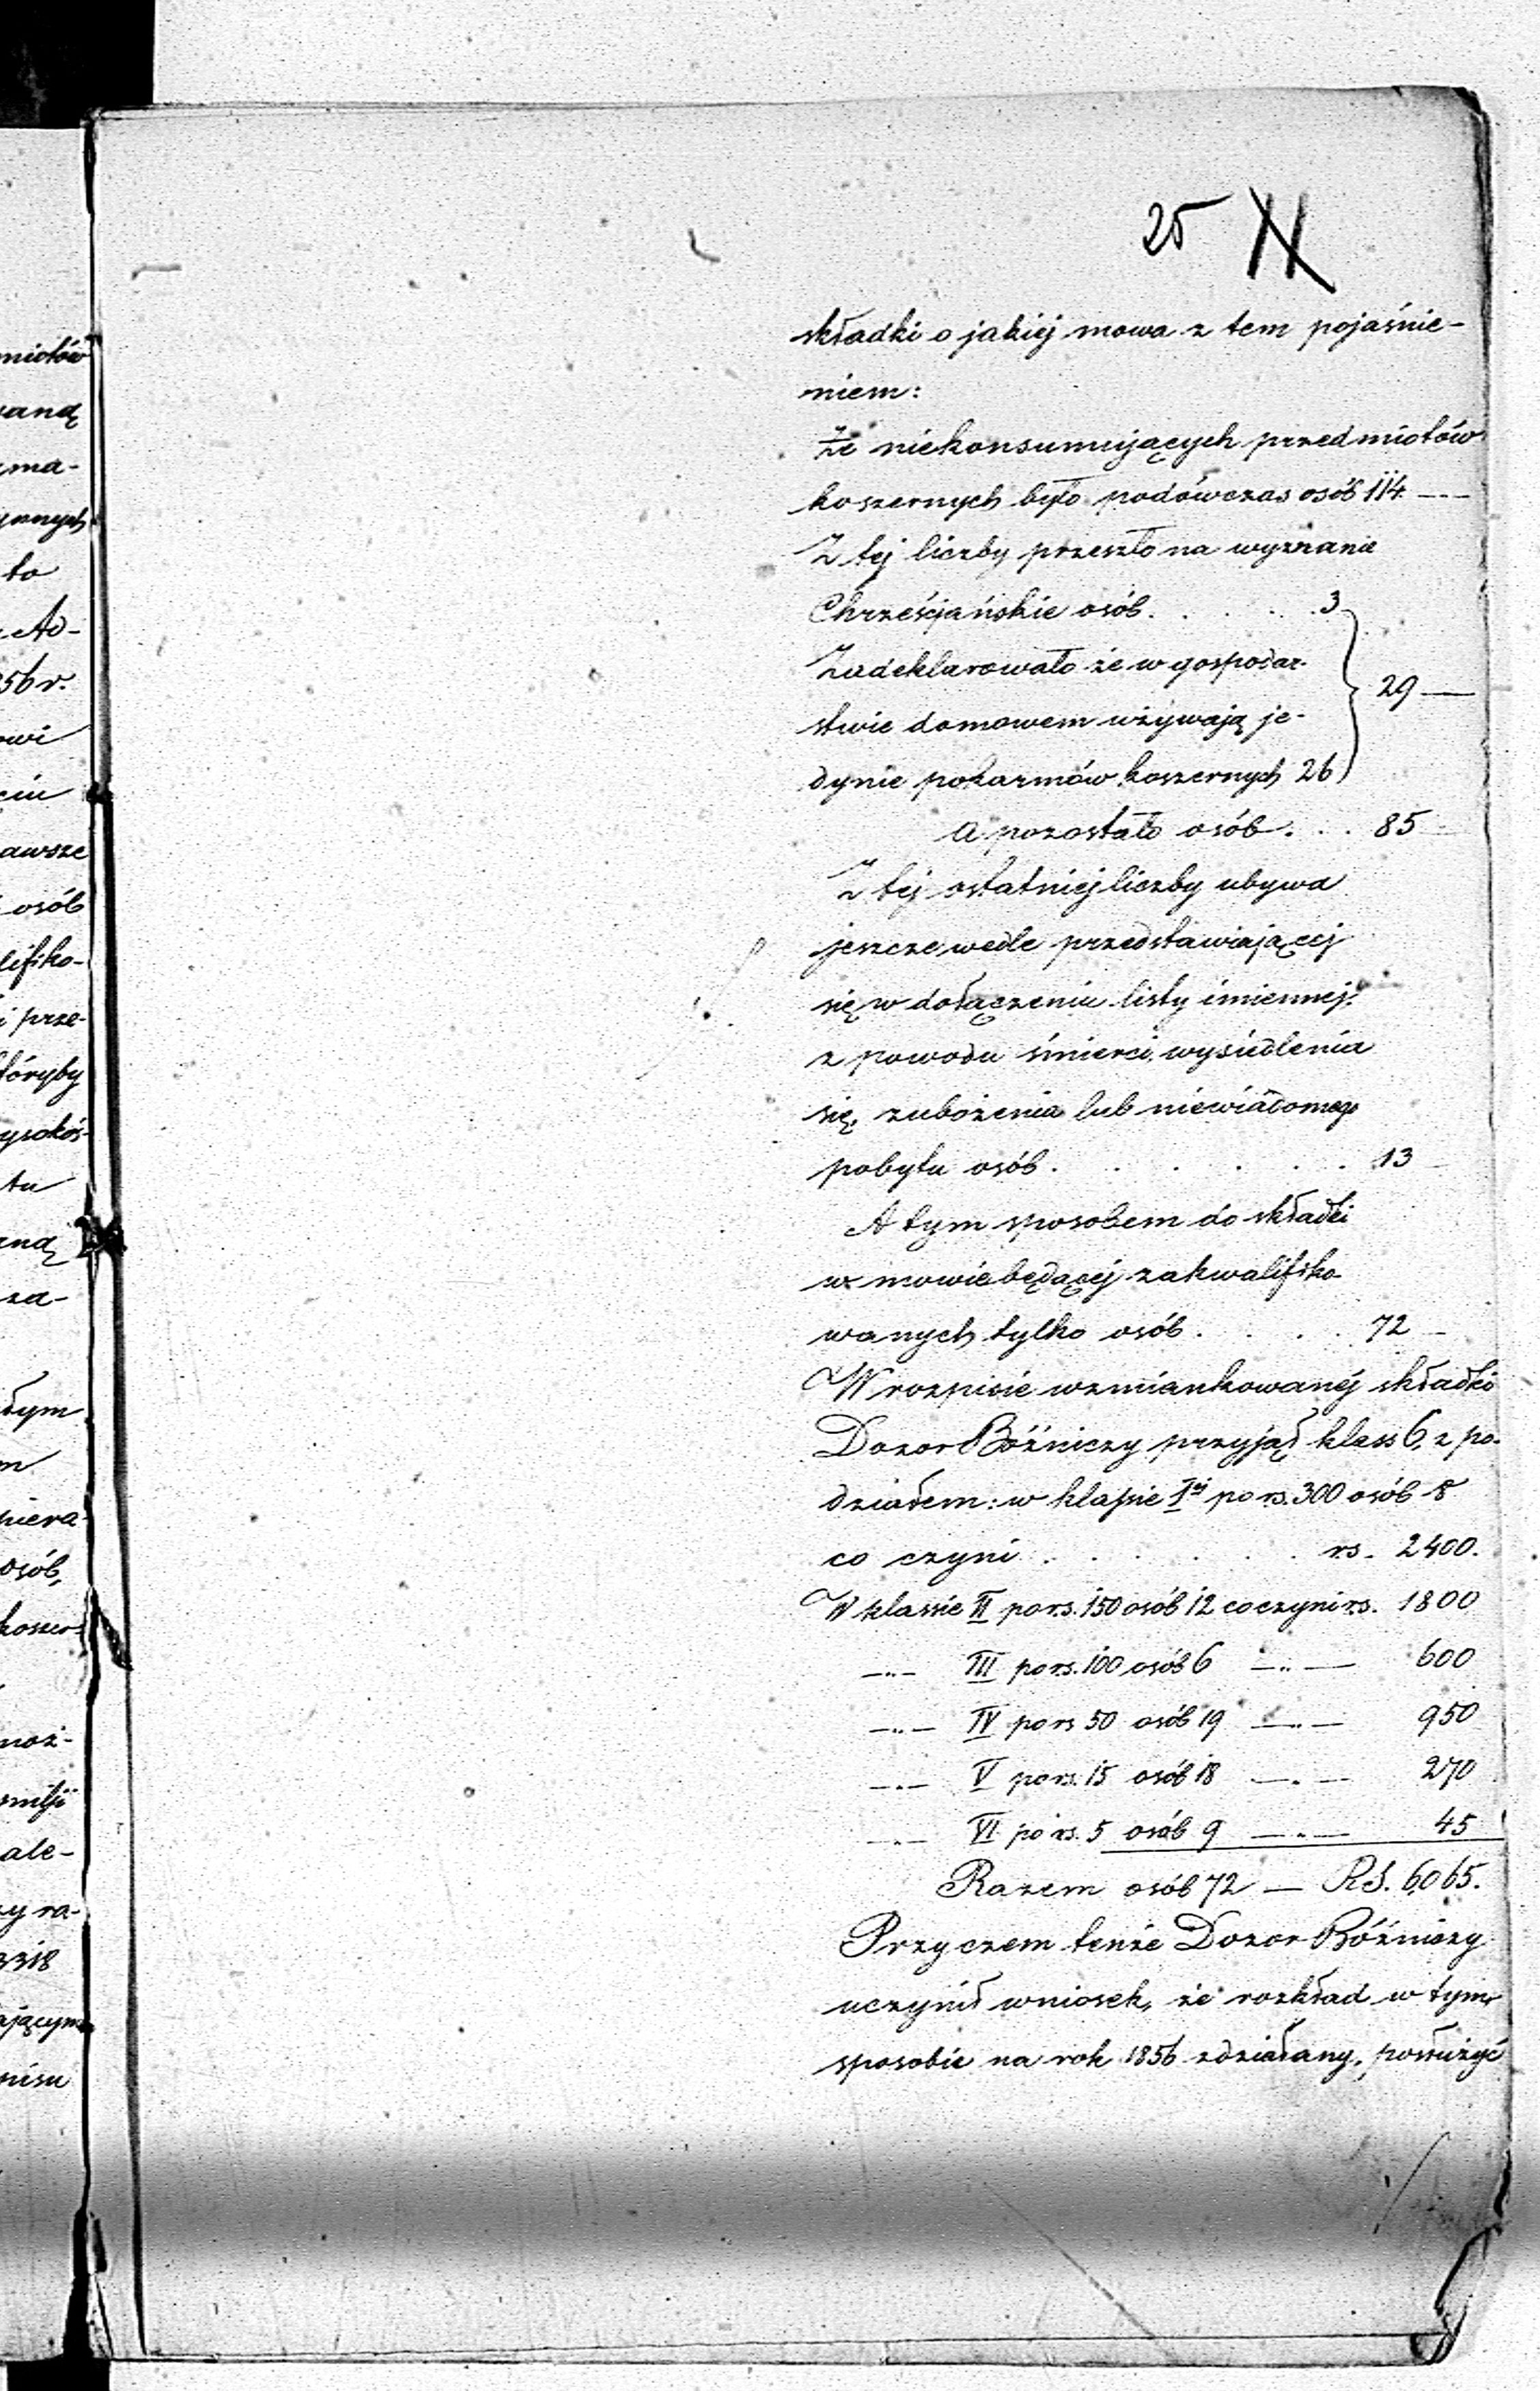 25
składki o jakiej mowa z tem pojaśnie-
niem:
Że niekonsumujących przedmiotów
koszernych było podówczas osób 114 —
Z tej liczby przeszło na wyznanie
Chrześcjańskie osób. . . . . 3
Zadeklarowało że w gospodar-
29 —
stwie domowem używają je-
dynie pokarmów koszernych 26
a pozostało osób. . . 85
Z tej ostatniej liczby ubywa
jeszcze wedle przedstawiającej
się w dołączeniu listy imiennej,
z powodu śmierci, wysiedlenia
się, zubożenia lub niewiadomego
pobytu osób. . . . . . 13
A tym sposobem do składki
w mowie będącej zakwalifiko-
wanych tylko osób. . . . 72
W rozpisie wzmiankowanéj składki
Dozor Bóźniczy przyjął klass 6, z po-
działem: w klassie Iéj po rs. 300 osób 8
co czyni . . . . . . rs. 2400.
W klassie II po rs. 150 osób 12 co czyni rs. 1800
—"— III po rs. 100 osób 6 —"— 600
—"— IV po rs 50 osób 19 —"— 950
—"— V po rs. 15 osób 18 —"— 270
—"— VI po rs. 5 osób 9 —"— 45
Razem osób 72 — RS. 6,065.
Przyczem tenże Dozor Bóźniczy
uczynił wniosek, że rozkład w tym
sposobie na rok 1856 zdziałany, posłużyć
miotów
ma-
to
Ad-
56 r.
awsze
osób
lifiko-
i prze-
tóryby
tu
za-
osób,
ale-
3318
ającym